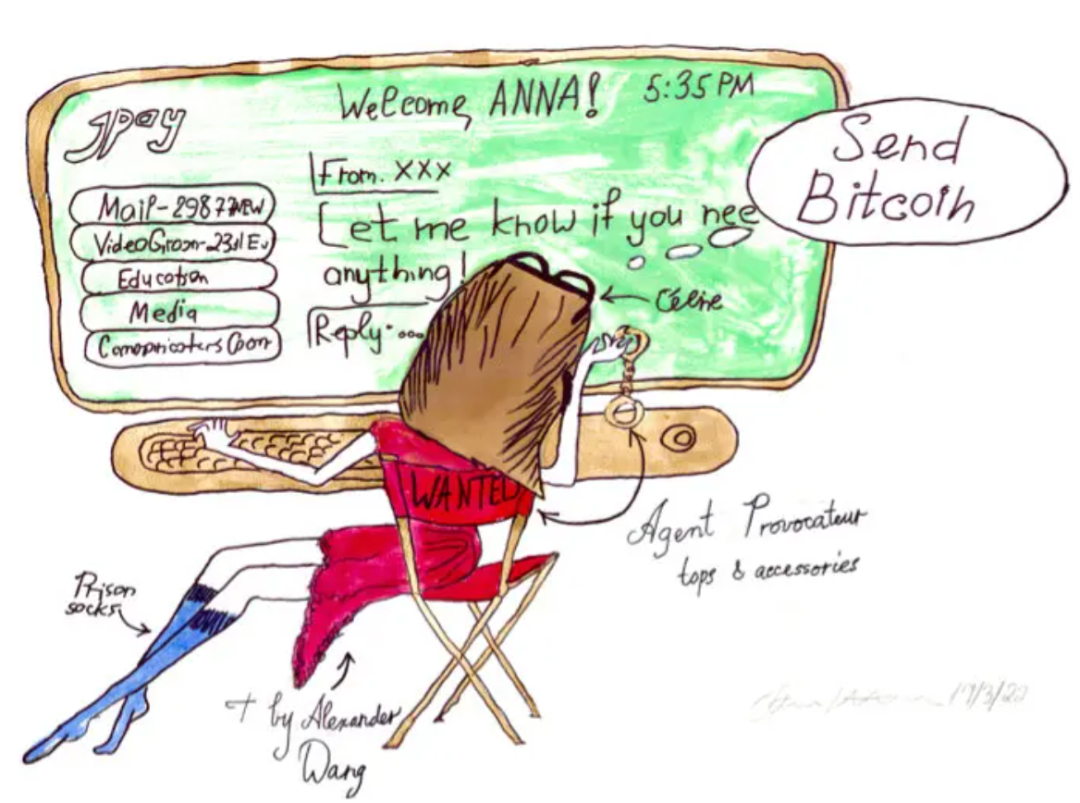 Welcome, ANNA! 5:35 PM
JPay
Send
Bitcoin
From. XXX
Let me know if you nee
anything!
Reply....
Mail-2987 NEW
Education
Media
Céline
WANTED
Agent Provocateur
tops & accessories
Prison
socks
by Alexander
Wang
17/3/20